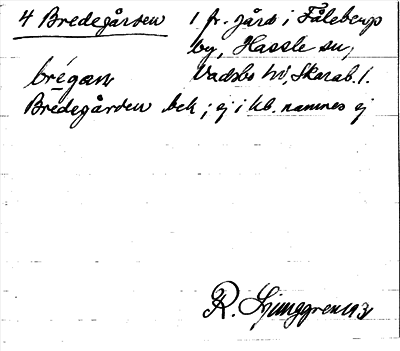 4 Bredegården 1 fr. gård i Fålebergs
by, Hassle sn,
brégan Vadsbo hd, Skarab. l.
Bredegården bek; ej i kb. namnes ej
R. Ljunggren